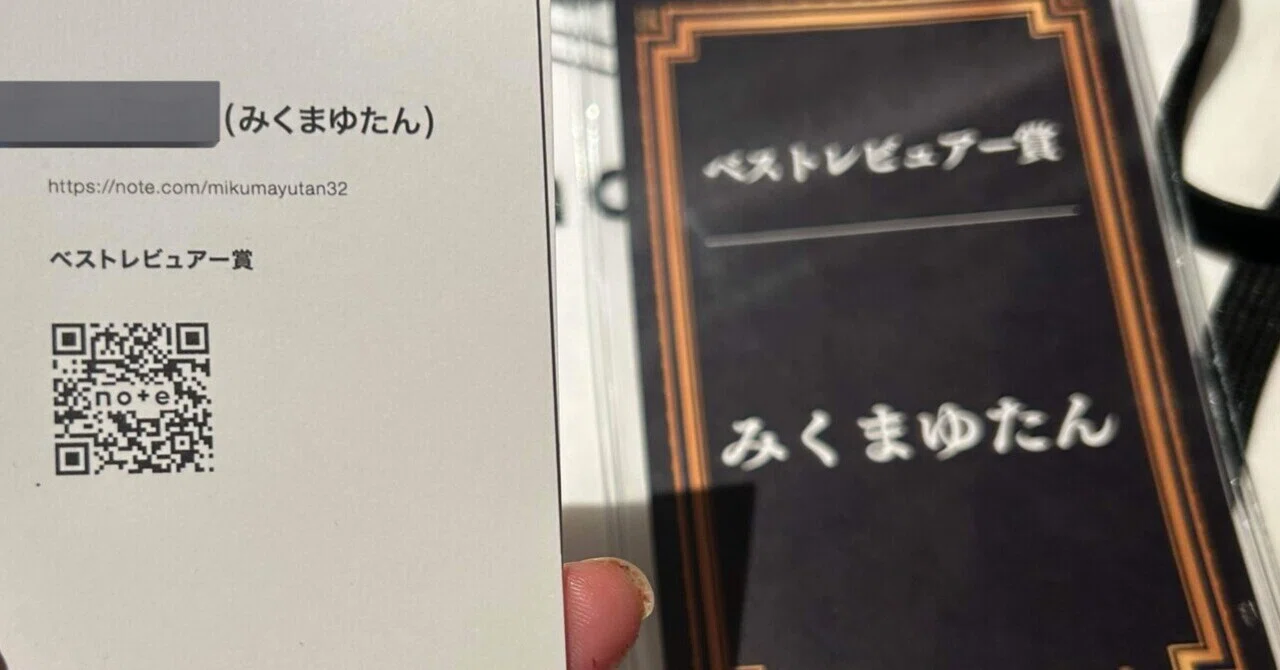 (みくまゆたん)
https://note.com/mikumayutan32
ベストレビュアー賞
note
ベストレビュアー賞
みくまゆたん